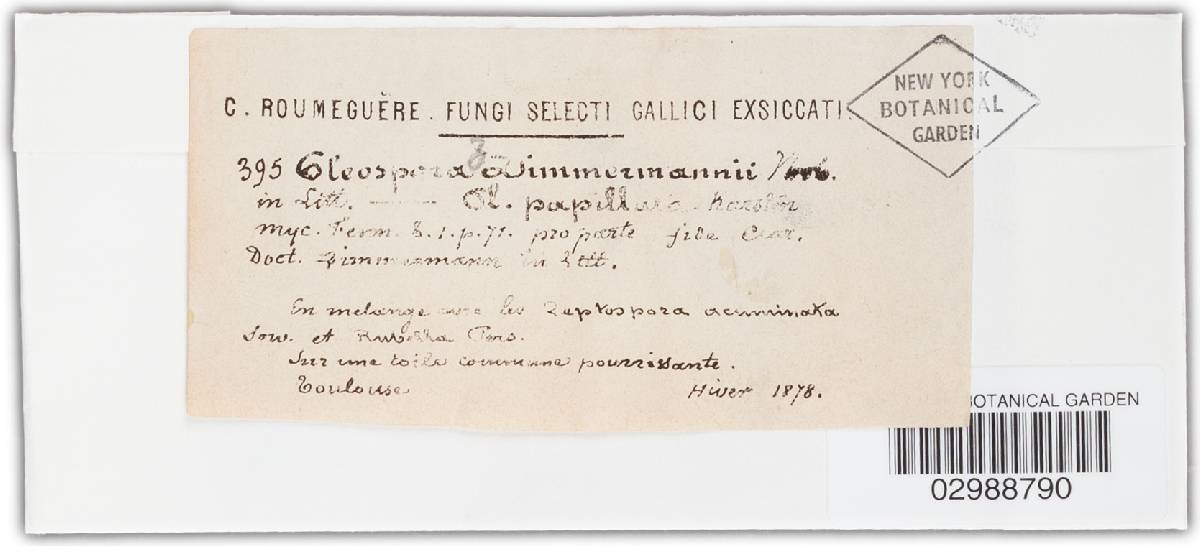 C. ROUMEGUÈRE. FUNGI SELECTI GALLICI EXSICCATI.
NEW YORK
BOTANICAL
GARDEN
395 Pleospora Zimmermannii
in Litt. — Pl. papillata Karstin
myc. Fenn. 2. 1. p. 71. pro parte fide Clar.
Doct. Zimmermann in Litt.
En melange avec les Leptospora acuminata
Sow. et Rubella Prs.
Sur une toile commune pourrissante.
Toulouse Hiver 1878.
BOTANICAL GARDEN
02988790